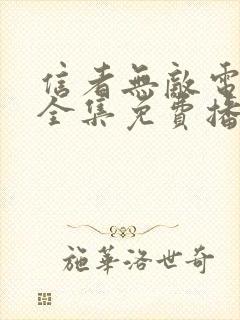 信者無敵電
全集免費播
施華洛世奇